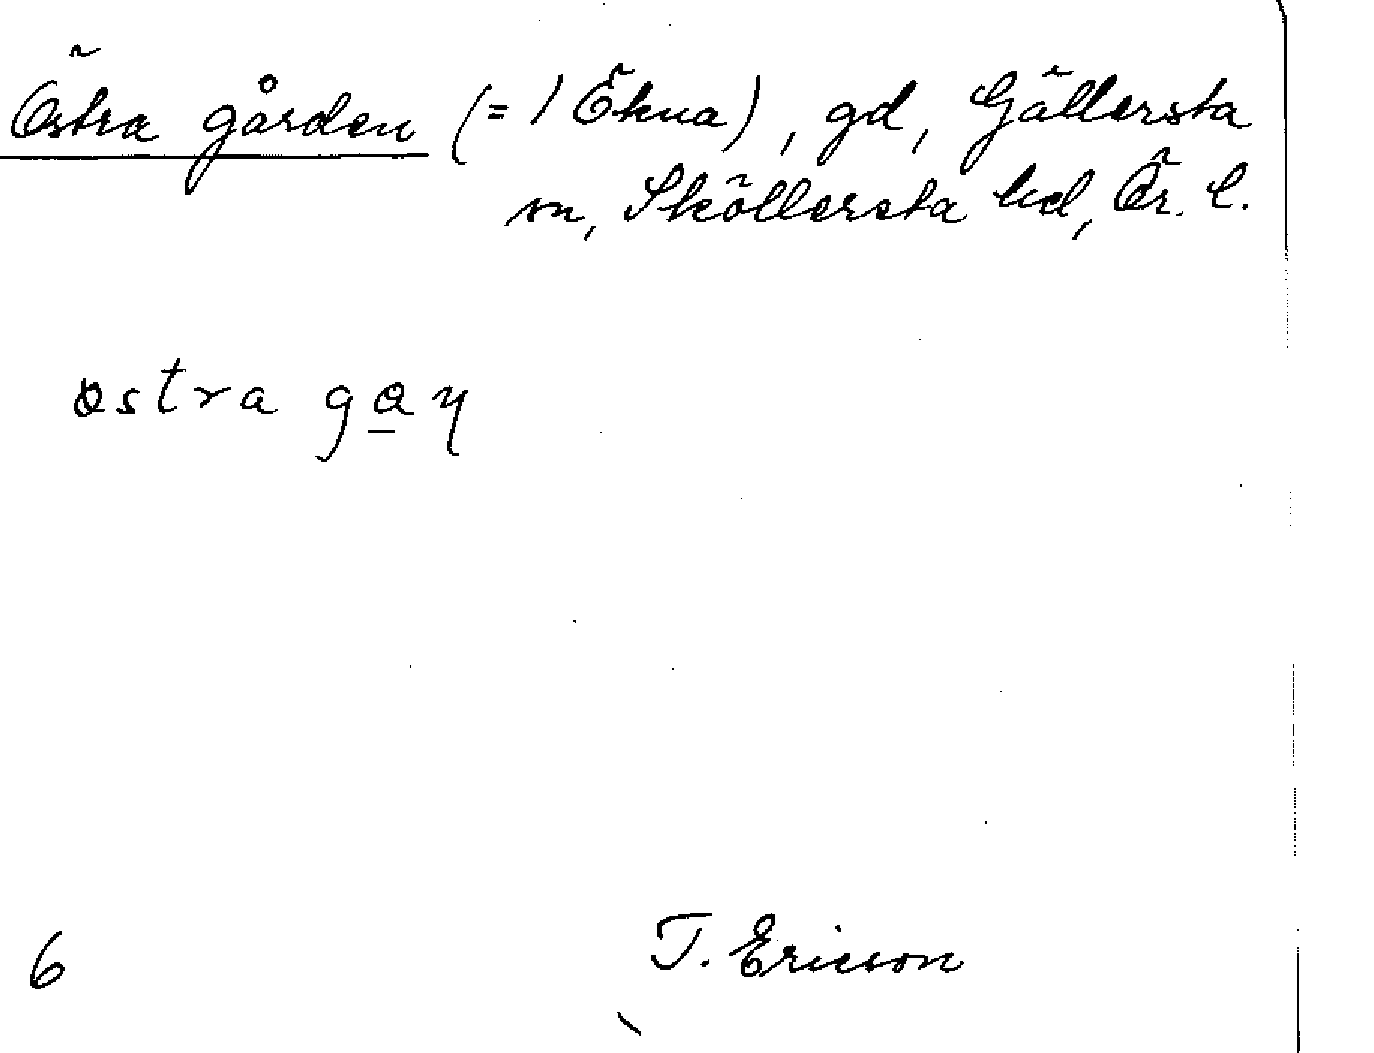 Östra gården (= 1 Ökna), gd, Gällersta
sn, Sköllersta hd, Ör. l.
östra
6 T. Ericson